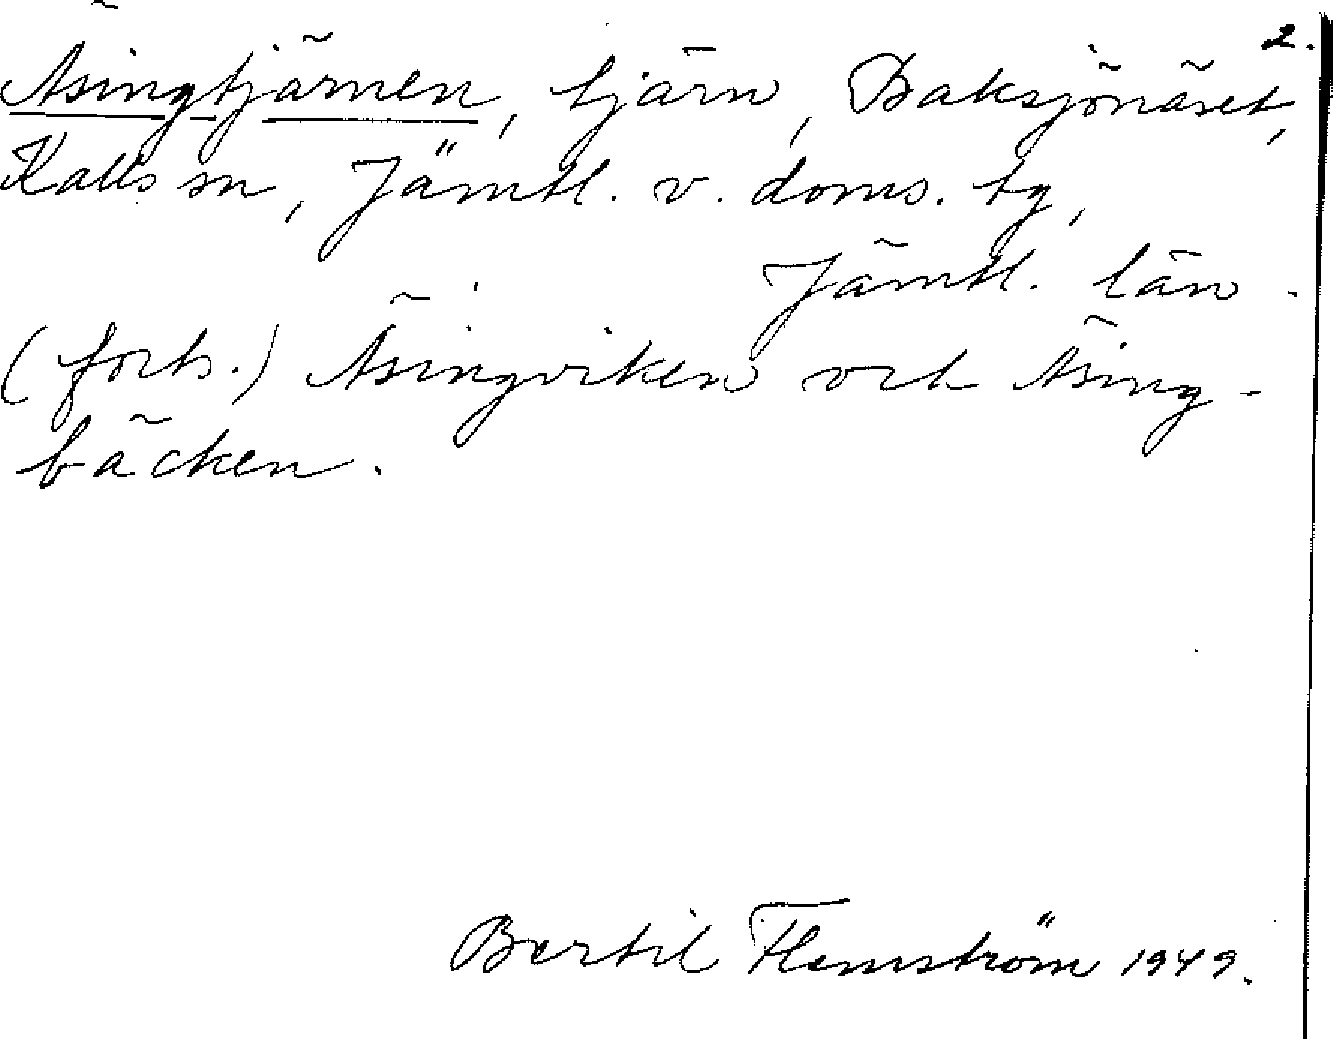 2.
Äsingtjärnen, tjärn, Baksjönäset,
Kalls sn, Jämtl. v. doms. tg,
Jämtl. län.
(forts.) Äsingviken och Äsing-
bäcken.
Bertil Flemström 1949.